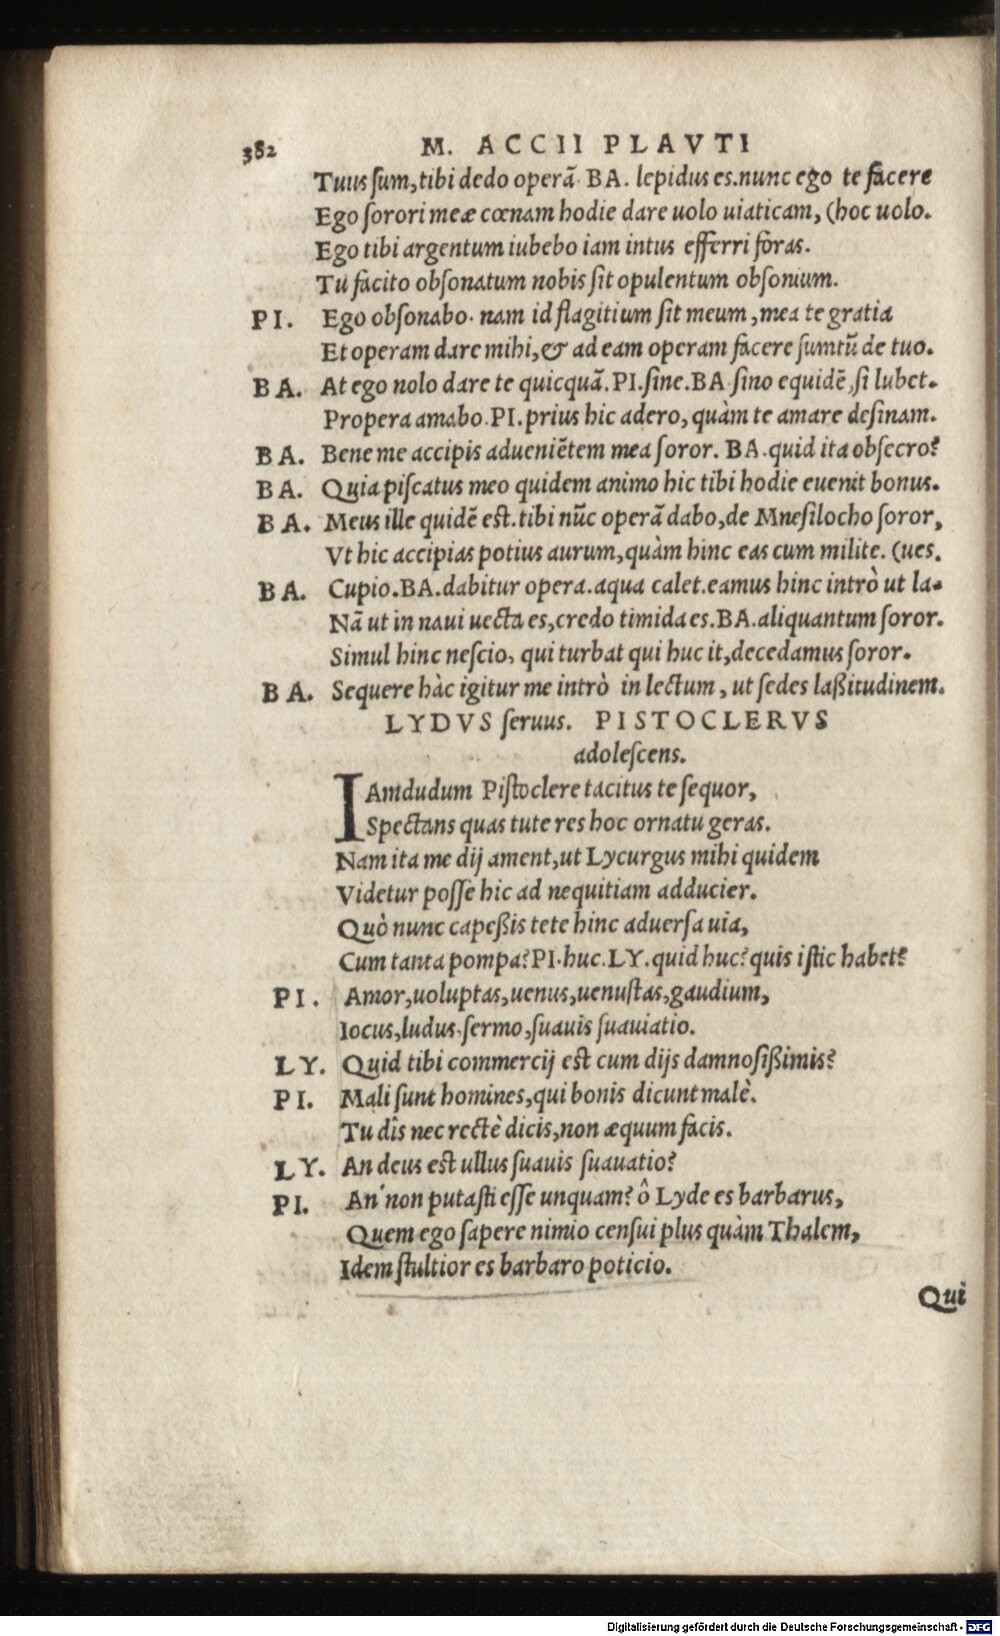 382 M. ACCII PLAVTI
Tuus ſum, tibi dedo operã. BA. lepidus es. nunc ego te facere
Ego ſorori meæ cœnam hodie dare uolo uiaticam, (hoc uolo.
Ego tibi argentum iubebo iam intus efferri foras.
Tu facito obſonatum nobis ſit opulentum obſonium.
PI. Ego obſonabo. nam id flagitium ſit meum, mea te gratia
Et operam dare mihi, & ad eam operam facere ſumtũ de tuo.
BA. At ego nolo dare te quicquã. PI. ſine. BA. ſino equidẽ, ſi lubet.
Propera amabo. PI. prius hic adero, quàm te amare deſinam.
BA. Bene me accipis adueniẽtem mea ſoror. BA. quid ita obſecro?
BA. Quia piſcatus meo quidem animo hic tibi hodie euenit bonus.
BA. Meus ille quidẽ eſt. tibi nũc operã dabo, de Mneſilocho ſoror,
Vt hic accipias potius aurum, quàm hinc eas cum milite. (ues.
BA. Cupio. BA. dabitur opera. aqua calet. eamus hinc intrò ut la-
Nã ut in naui uecta es, credo timida es. BA. aliquantum ſoror.
Simul hinc neſcio, qui turbat qui huc it, decedamus ſoror.
BA. Sequere hàc igitur me intrò in lectum, ut ſedes laßitudinem.
LYDVS ſeruus. PISTOCLERVS
adoleſcens.
IAmdudum Piſtoclere tacitus te ſequor,
Spectans quas tute res hoc ornatu geras.
Nam ita me dij ament, ut Lycurgus mihi quidem
Videtur poſſe hic ad nequitiam adducier.
Quò nunc capeßis tete hinc aduerſa uia,
Cum tanta pompa? PI. huc. LY. quid huc? quis iſtic habet?
PI. Amor, uoluptas, uenus, uenuſtas, gaudium,
Iocus, ludus. ſermo, ſuauis ſuauiatio.
LY. Quid tibi commercij eſt cum dijs damnoſißimis?
PI. Mali ſunt homines, qui bonis dicunt malè.
Tu dîs nec rectè dicis, non æquum facis.
LY. An deus eſt ullus ſuauis ſuauatio?
PI. An' non putaſti eſſe unquam? ô Lyde es barbarus,
Quem ego ſapere nimio cenſui plus quàm Thalem,
Idem ſtultior es barbaro poticio.
Qui
Digitalisierung gefördert durch die Deutsche Forschungsgemeinschaft - DFG